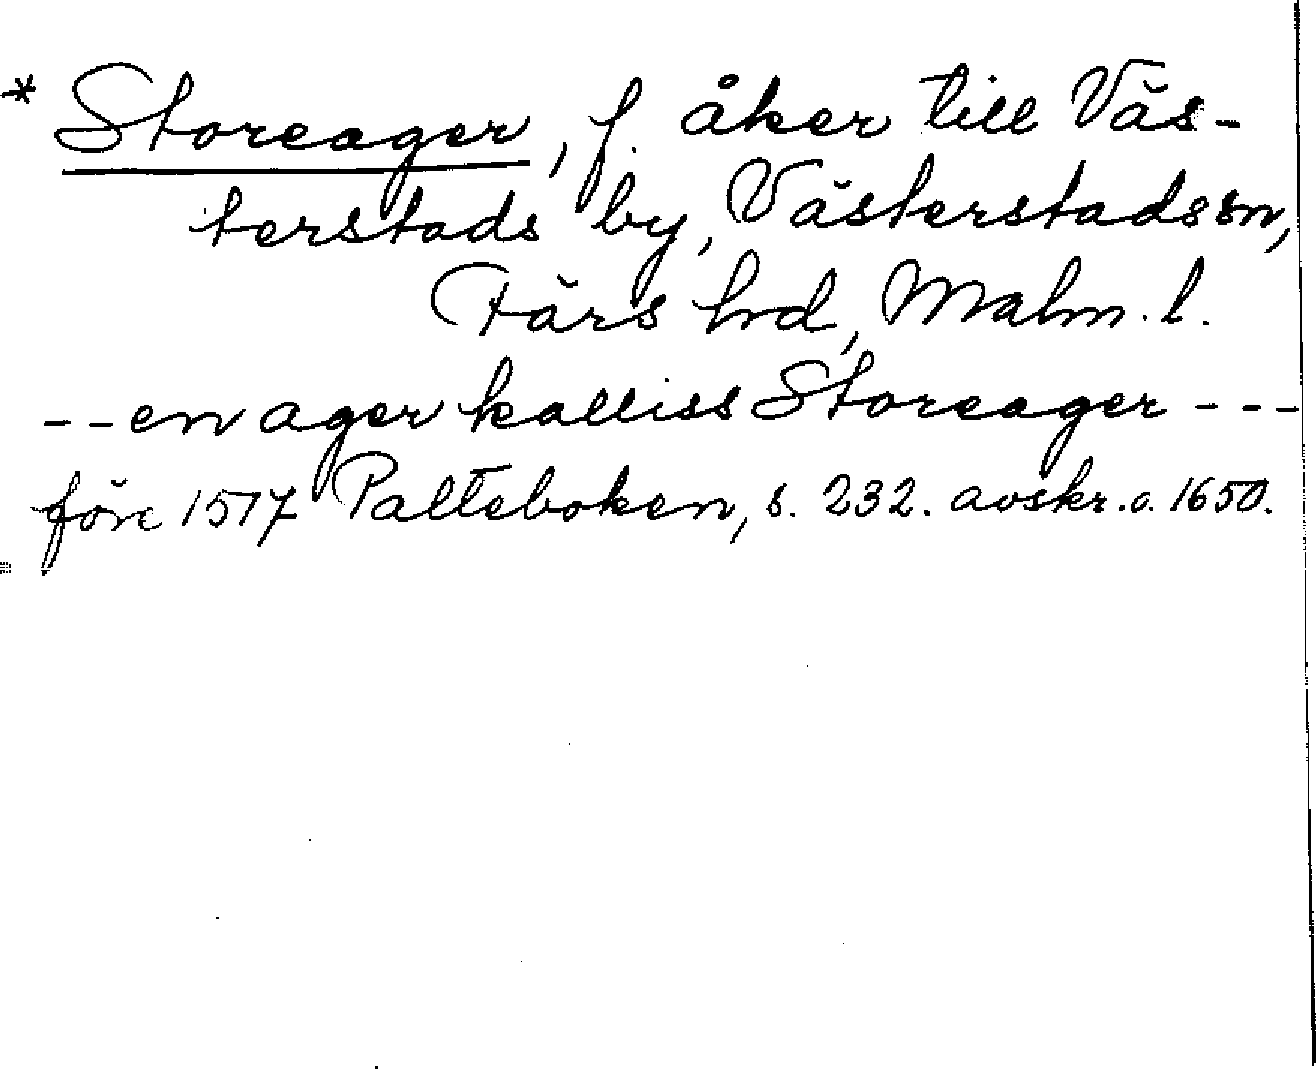 * Storeager, f. åker till Väs-
terstads by, Västerstads sn,
Färs hd, Malm. l.
-- en ager kalliss Storeager ---
före 1517 Palteboken, s. 232. avskr. o. 1650.